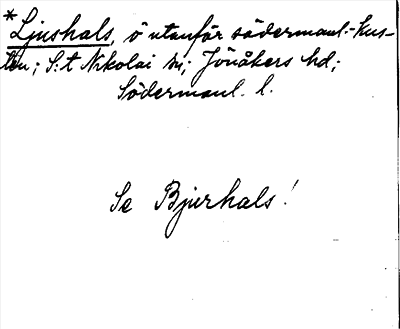 * Ljushals, ö utanför södermanl:-kus-
ten; S:t Nikolai sn; Jönåkers hd;
Södermanl. l.
Se Bjurhals!